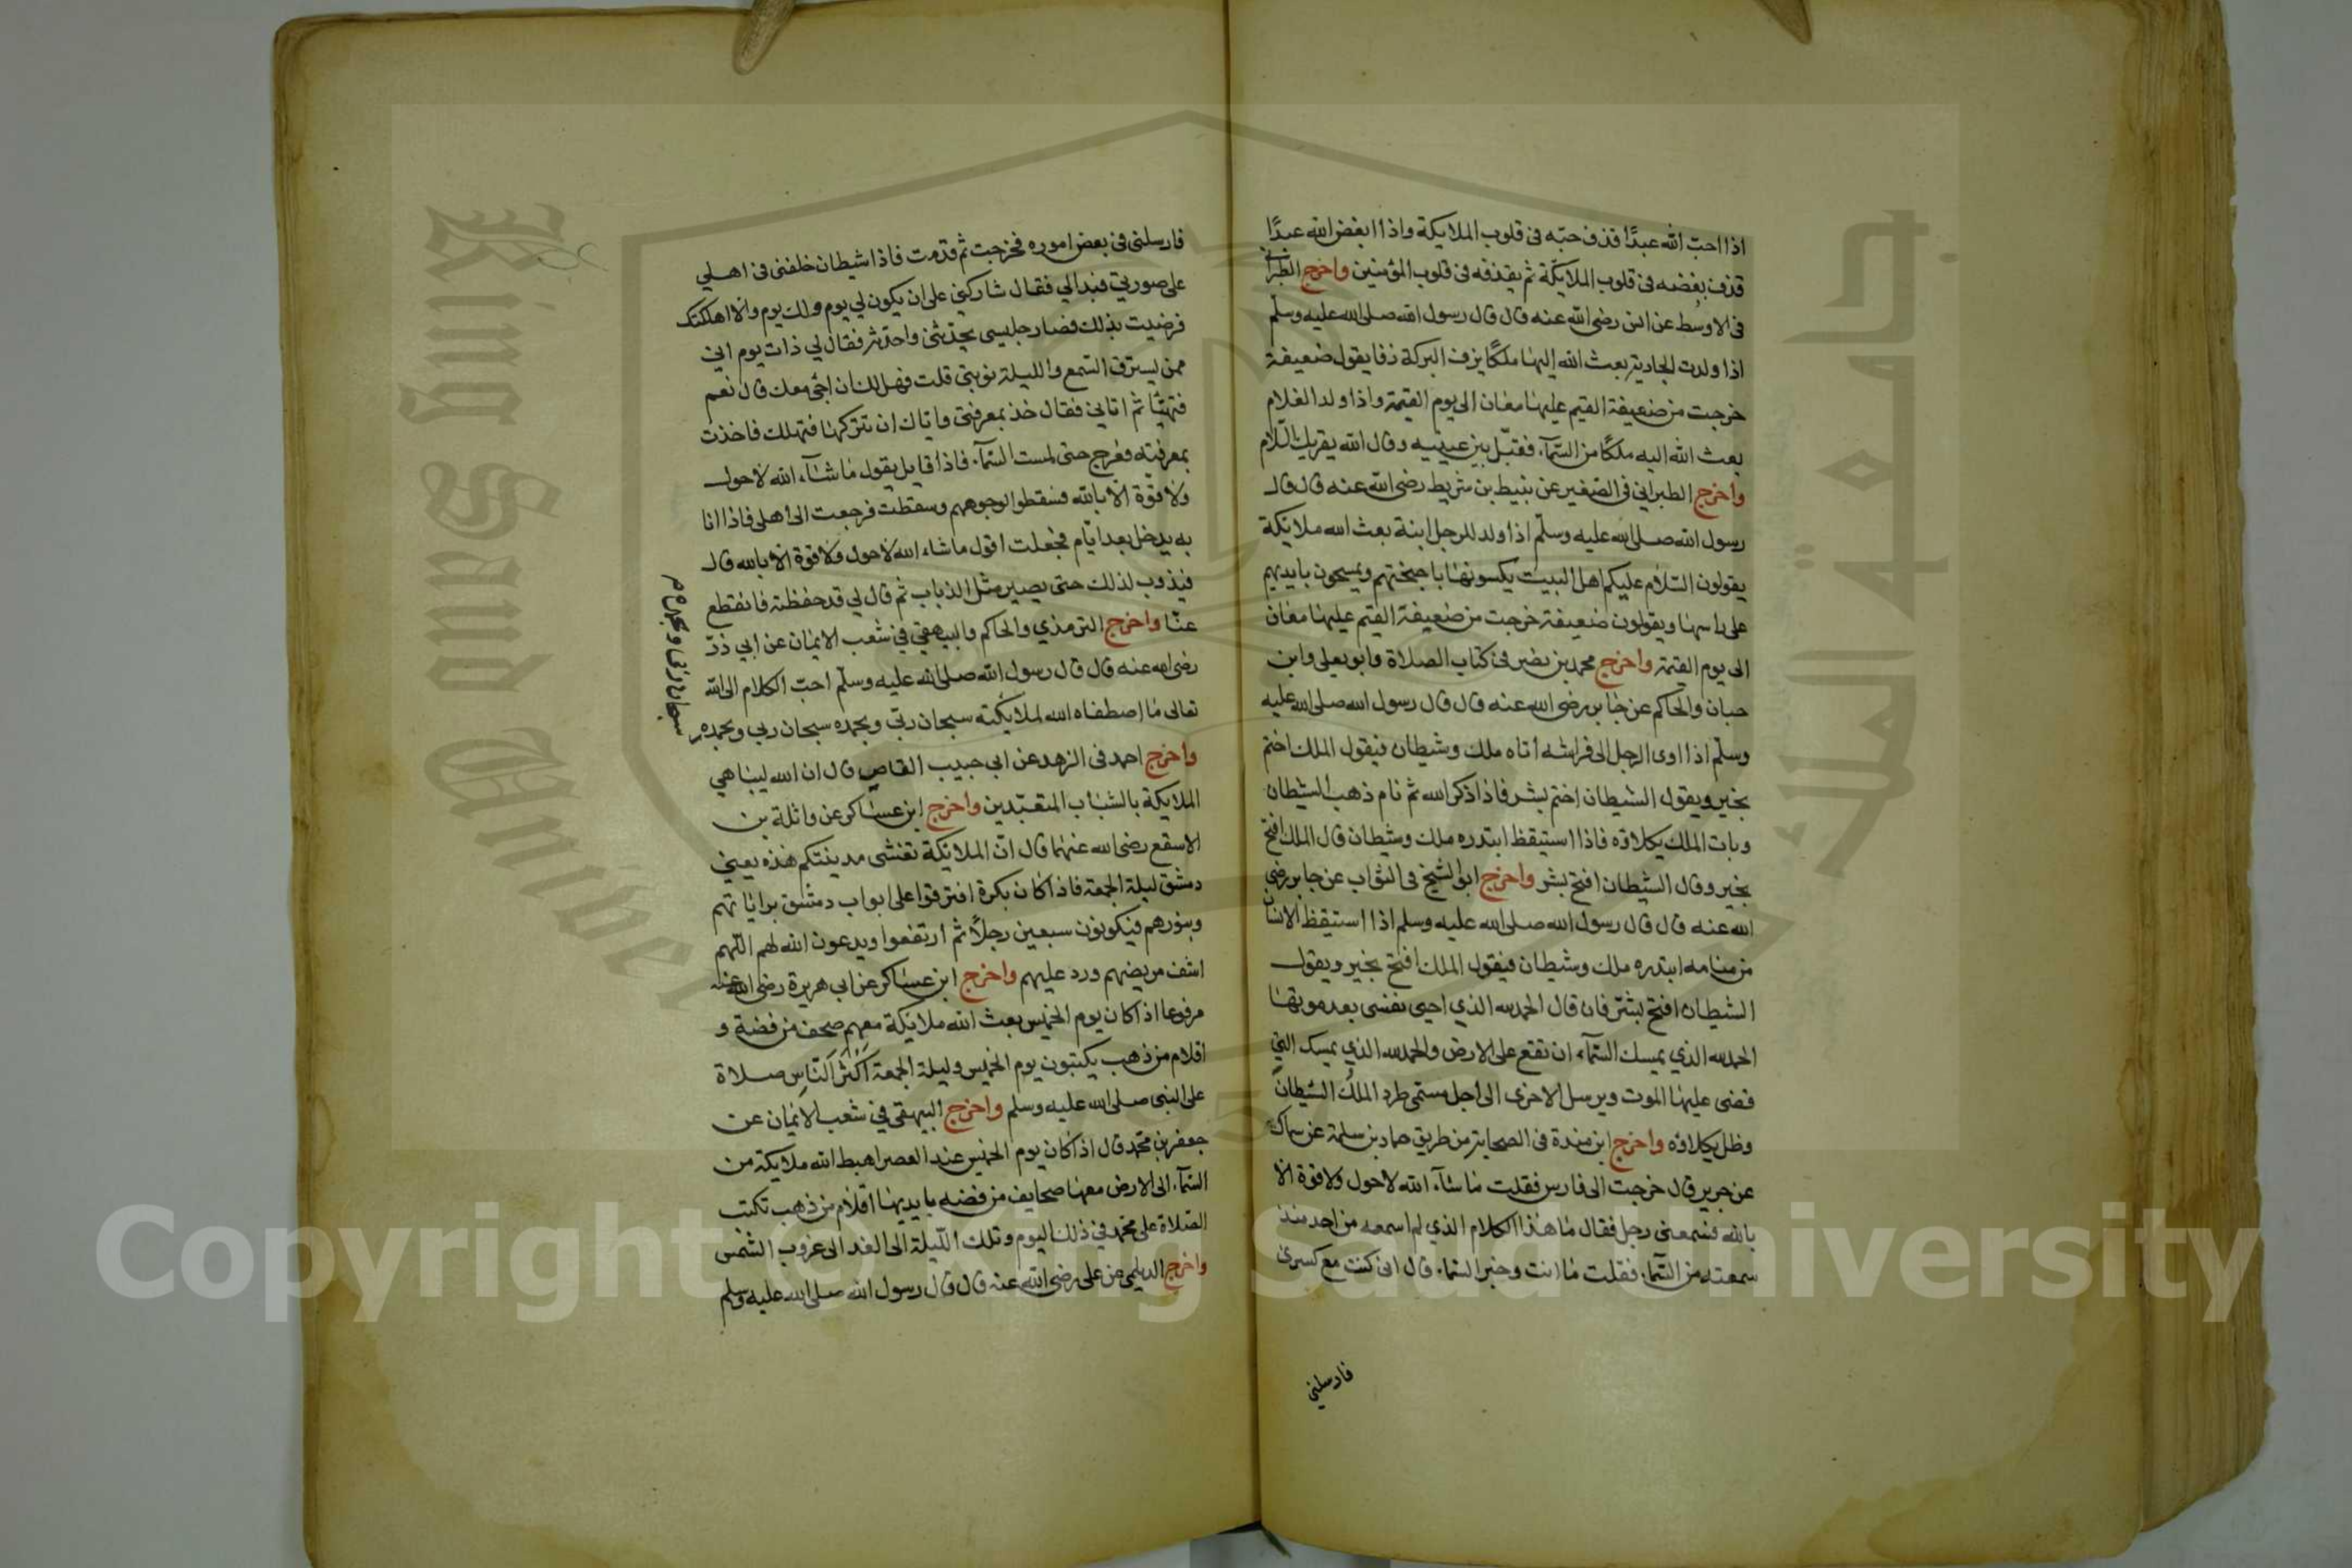 اذا احبّ الله عبدًا قذف حبّه فى قلوب الملايكة واذا ابغض الله عبدًا
قذف بغضه فى قلوب الملايكة ثم يقذفه فى قلوب المؤمنين واخرج الطبرانى
فى الاوسط عن انس رضى الله عنه قال قال رسول الله صلى الله عليه وسلم
اذا ولدت الجارية بعث الله إليها ملكًا يزف البركة زفا يقول ضعيفة
خرجت من ضعيفة القيم عليها معان الى يوم القيمة واذا ولد الغلام
بعث الله اليه ملكًا من السّمآء فقبّل بين عينيه وقال الله يقريك السّلام
واخرج الطبراني فى الصغير عن نبيط بن شريط رضى الله عنه قال قال
رسول الله صلى الله عليه وسلّم اذا ولد للرجل ابنة بعث الله ملائكة
يقولون السّلام عليكم اهل البيت يكسونها باجنحتهم ويمسحون بايديهم
على راسها ويقولون ضعيفة خرجت من ضعيفة القيّم عليها معان
الى يوم القيمة واخرج محمد بن نصر فى كتاب الصلاة وابو يعلى وابن
حبان والحاكم عن جابر رضى الله عنه قال قال رسول الله صلى الله عليه
وسلّم اذا اوى الرجل الى فراشه أتاه ملك وشيطان فيقول الملك اختم
بخير ويقول الشيطان اختم بشر فاذا ذكر الله ثم نام ذهب الشيطان
وبات الملك يكلاؤه فاذا استيقظ ابتدره ملك وشيطان قال الملك افتح
بخير وقال الشيطان افتح بشر واخرج ابو الشيخ فى الثواب عن جابر رضى
الله عنه قال قال رسول الله صلى الله عليه وسلم اذا استيقظ الانسان
من منامه ابتدره ملك وشيطان فيقول الملك افتح بخير ويقول
الشيطان افتح بشرّ فان قال الحمد لله الذي احيى نفسى بعد موتها
الحمد لله الذي يمسك السّمآء ان تقع على الارض والحمد لله الذي يمسك التي
قضى عليها الموت ويرسل الاخرى الى أجل مسمّى طرد الملك الشيطان
وظل يكلاؤه واخرج ابن مندة فى الصحابة من طريق حماد بن سلمة عن سماك
عن جرير قال خرجت الى فارس فقلت ما شآء الله لا حول ولا قوة الا
بالله فسمعنى رجل فقال ما هذا الكلام الذي لم اسمعه من احد منذ
سمعته من السّمآء فقلت ما انت وخبر السّمآء قال انى كنت مع كسرى
فارسلني
فارسلنى فى بعض اموره فخرجت ثم قدمت فاذا شيطان خلفنى فى اهلي
على صورتي فبدا لي فقال شاركني على ان يكون لي يوم ولك يوم والا اهلكتك
فرضيت بذلك فصار جليسى يحدثنى واحدثه فقال لي ذات يوم اني
ممن يسترق السّمع والليلة نوبتي قلت فهل لك ان اجئ معك قال نعم
فتهيّئا ثم اتاني فقال خذ بمعرفتي واياك ان تتركها فتهلك فاخذت
بمعرفته فعرج حتى لمست السّمآء فاذا قايل يقول ما شآء الله لا حول
ولا قوّة الّا بالله فسقطوا لوجوههم وسقطت فرجعت الى أهلى فاذا انا
به يدخل بعد ايّام فجعلت اقول ما شاء الله لا حول ولا قوة الا بالله قال
فيذوب لذلك حتى يصير مثل الذباب ثم قال لي قد حفظته فانقطع
عنّا واخرج الترمذي والحاكم والبيهقي في شعب الايمان عن ابي ذرّ
رضى الله عنه قال قال رسول الله صلى الله عليه وسلّم احبّ الكلام الى الله
تعالى ما إصطفاه الله لملايكته سبحان ربّي وبحمده سبحان ربي وبحمده
سبحان ربي وبحمده م
واخرج احمد فى الزهد عن ابي حبيب القاص قال ان الله ليباهي
الملايكة بالشباب المتعبّدين واخرج ابن عساكر عن واثلة بن
الاسقع رضى الله عنهما قال انّ الملائكة تغشى مدينتكم هذه يعني
دمشق ليلة الجمعة فاذا كان بكرة افترقوا على ابواب دمشق براياتهم
وبنورهم فيكونون سبعين رجلًا ثم ارتفعوا ويدعون الله لهم اللّهم
اشف مريضهم ورد عليهم واخرج ابن عساكر عن ابي هريرة رضى الله عنه
مرفوعا اذا كان يوم الخميس بعث الله ملائكة معهم صحف من فضة و
اقلام من ذهب يكتبون يوم الخميس وليلة الجمعة اَكْثَرَ النّاسِ صلاة
على النبى صلى الله عليه وسلم واخرج البيهقى في شعب الايمان عن
جعفر بن محمّد قال اذا كان يوم الخميس عند العصر اهبط الله ملايكة من
السّمآء الى الارض معها صحايف من فضه بايديها اقلام من ذهب تكتب
الصّلاة على محمّد في ذلك اليوم وتلك اللّيلة الى الغد الى غروب الشمس
واخرج الديلمى عن على رضى الله عنه قال قال رسول الله صلى الله عليه وسلم
King Saud Univer
جامعة الملك
Copyright © King Saud University